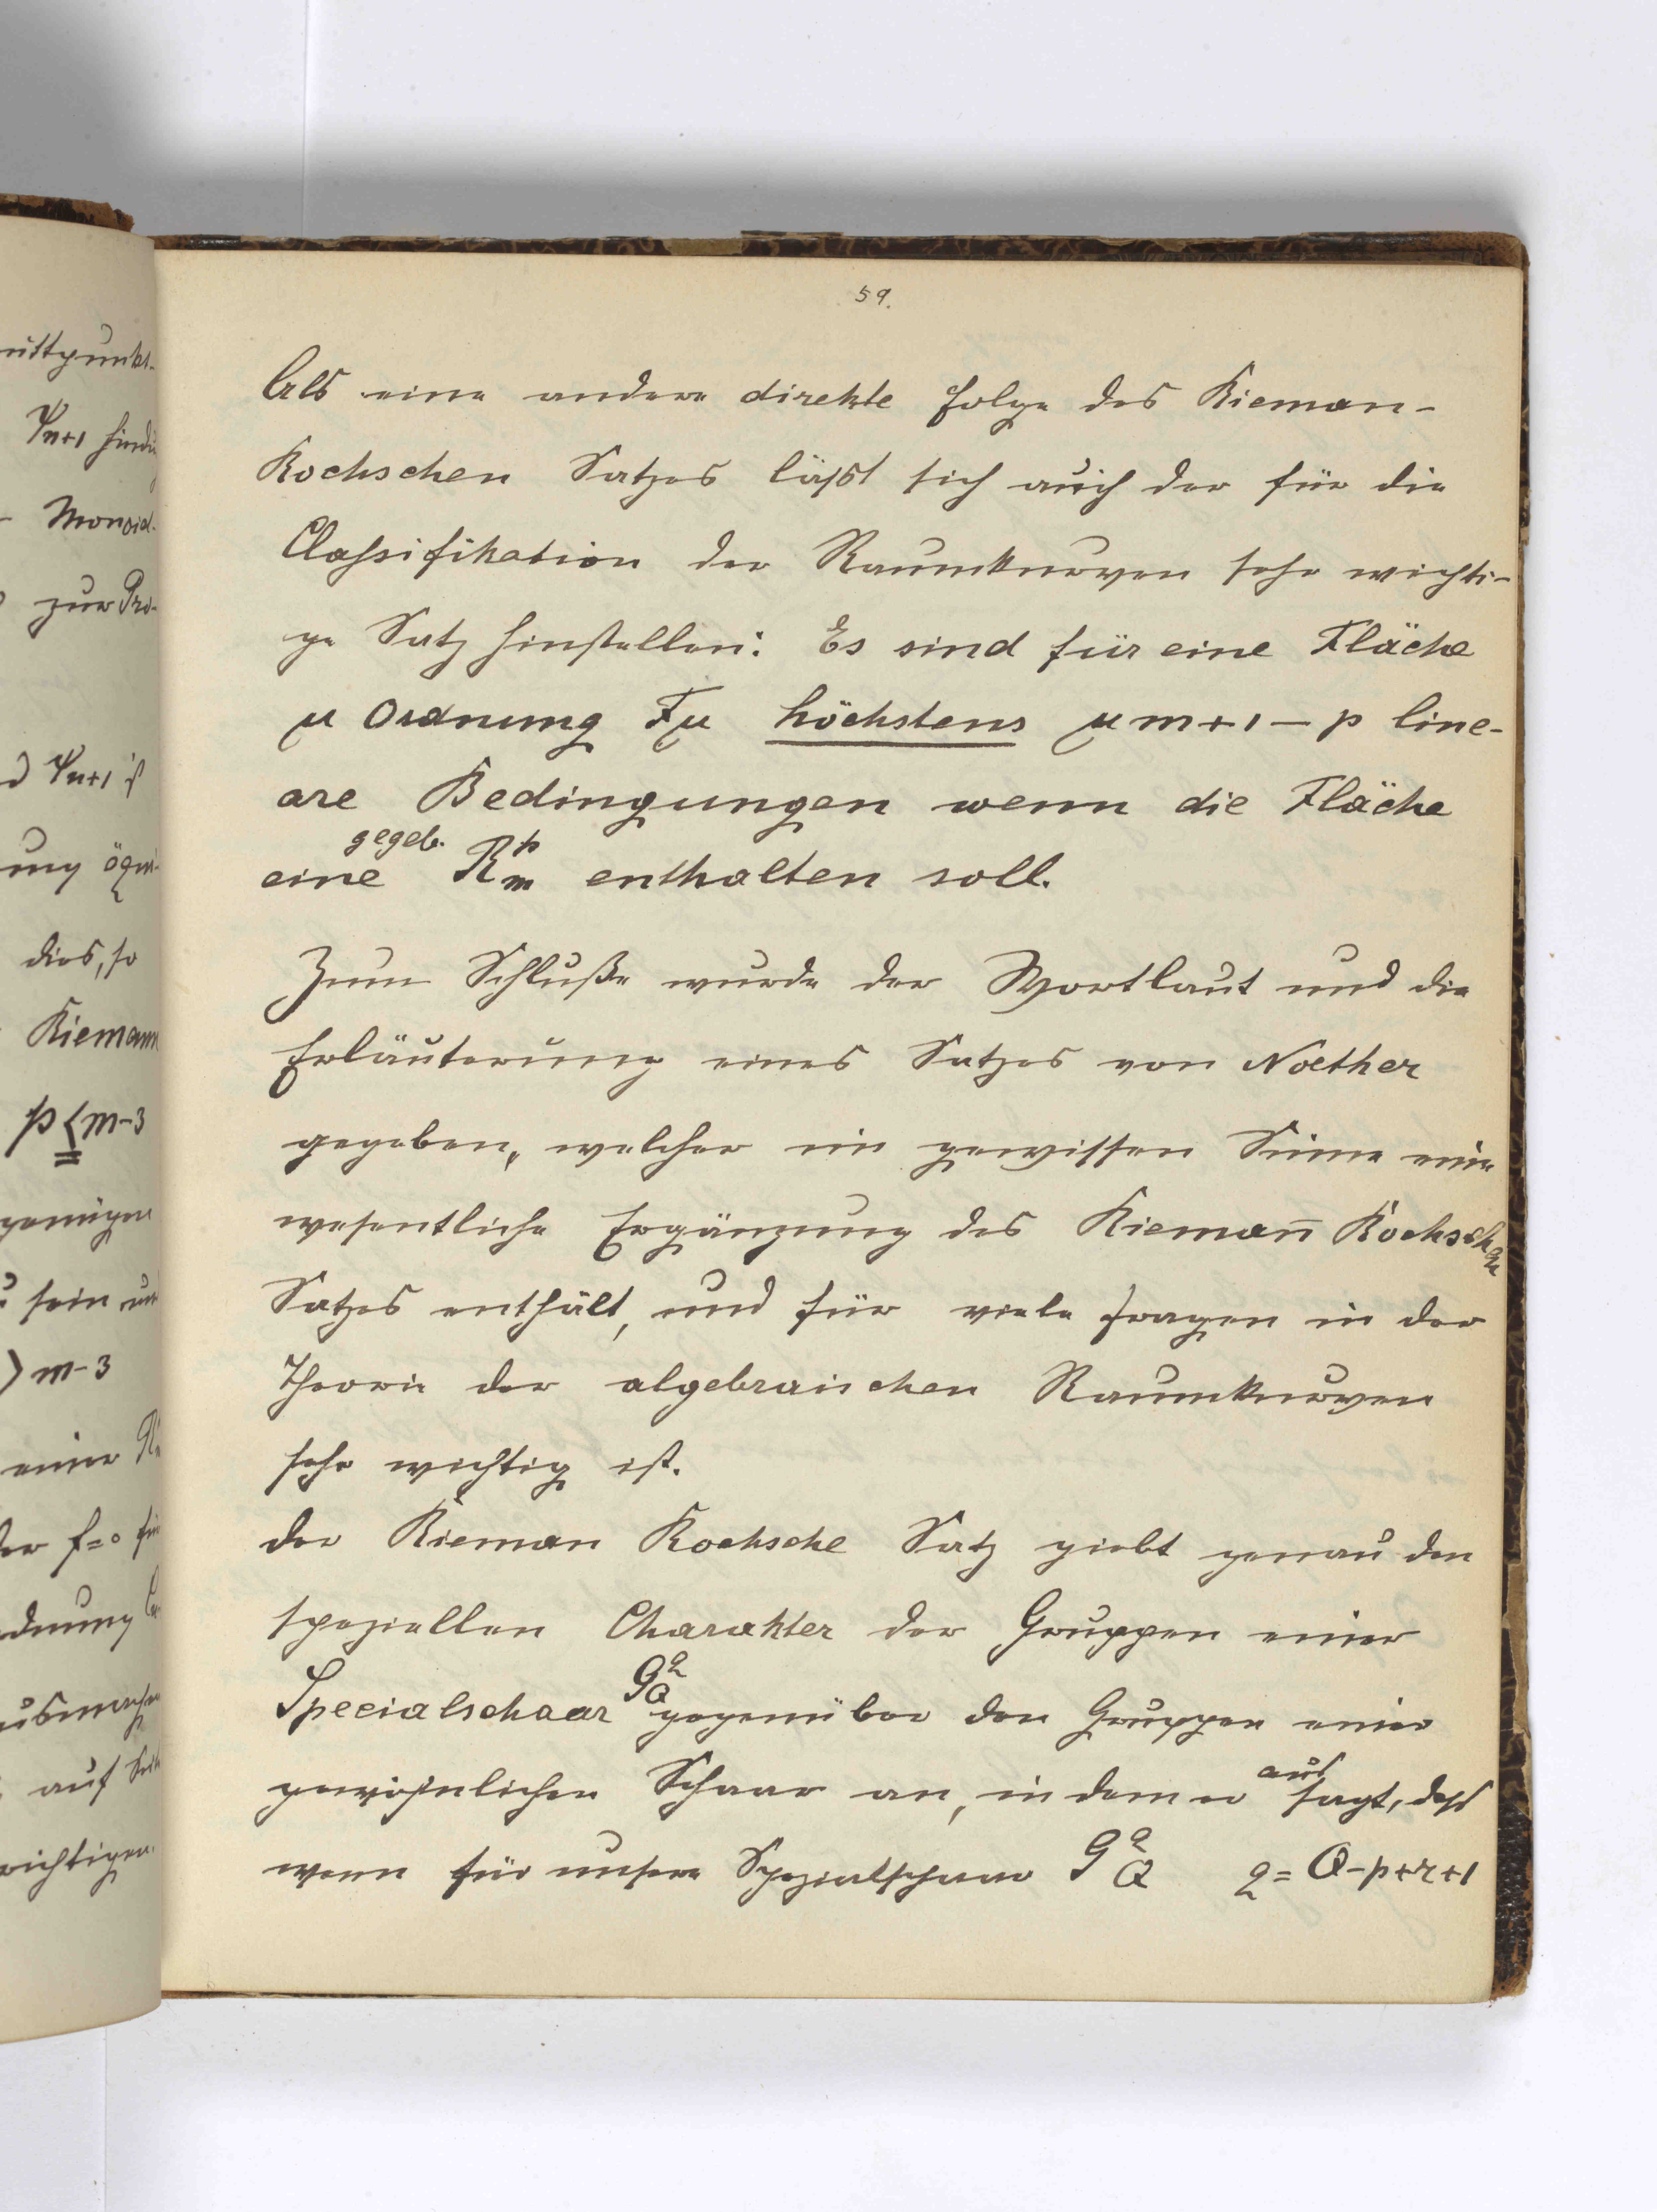 59.
Als eine andere direkte Folge des Rieman-
Rochschen Satzes läßt sich auch der für die
Classifikation der Raumkurven sehr wichti-
ge Satz hinstellen: Es sind für eine Fläche
μ Ordnung Fμ höchstens μm+1-p line-
are Bedingungen wenn die Fläche
gegeb.
eine R^p_m enthalten soll.
Zum Schluße wurde der Wortlaut und die
Erläuterung eines Satzes von Noether
gegeben, welcher im gewissen Sinne eine
wesentliche Ergänzung des Riemañ Rochschen
Satzes enthält, und für viele Fragen in der
Theorie der algebraischen Raumkurven
sehr wichtig ist.
der Rieman Rochsche Satz giebt genau den
speziellen Charakter der Gruppen einer
Specialschaar g^q_Q gegenüber den Gruppen einer
gewöhnlichen Schaar an, indem er aus sagt, daß
wenn für unsere Spezialschaar g^q_Q q=Q-p+r+1
mittpunkt-
Ψn+1 hindu
- Monoid.
zur Pro-
d Ψn+1 ist
ung äqui-
dies, so
Riemann
p≦m-3
sein und
> m-3
einer
der f=0
dnung
auf
wichtigen